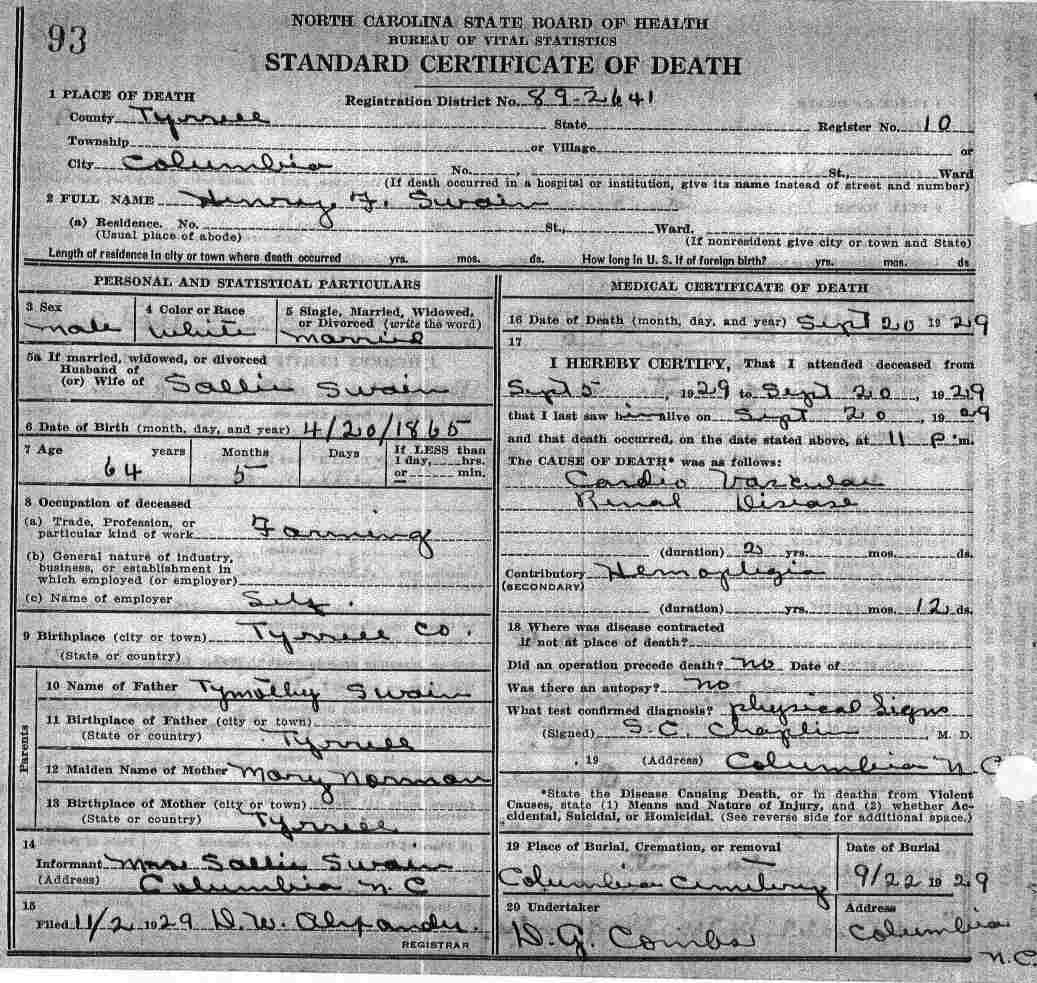 93
NORTH CAROLINA STATE BOARD OF HEALTH
BUREAU OF VITAL STATISTICS
STANDARD CERTIFICATE OF DEATH
1 PLACE OF DEATH Registration District No. 89-2641
County Tyrrell State Register No. 10
Township or Village or
City Columbia No. , St., Ward
(If death occurred in a hospital or institution, give its name instead of street and number)
2 FULL NAME Henry F. Swain
(a) Residence. No. St., Ward.
(Usual place of abode) (If nonresident give city or town and State)
Length of residence in city or town where death occurred yrs. mos. ds. How long in U. S. if of foreign birth? yrs. mos. ds
PERSONAL AND STATISTICAL PARTICULARS
3 Sex 4 Color or Race 5 Single, Married, Widowed,
or Divorced (write the word)
male White married
5a If married, widowed, or divorced
Husband of
(or) Wife of Sallie Swain
6 Date of Birth (month, day, and year) 4/20/1865
7 Age years Months Days If LESS than
1 day, hrs.
64 5 or min.
8 Occupation of deceased
(a) Trade, Profession, or
particular kind of work Farming
(b) General nature of industry,
business, or establishment in
which employed (or employer)
(c) Name of employer Self.
9 Birthplace (city or town) Tyrrell Co.
(State or country)
Parents
10 Name of Father Tymothy Swain
11 Birthplace of Father (city or town)
(State or country) Tyrrell
12 Maiden Name of Mother Mary Norman
13 Birthplace of Mother (city or town)
(State or country) Tyrrell
14
Informant Sallie Swain
(Address) Columbia N.C
15
Filed 11/2 1929 D. W. Alexander.
REGISTRAR
MEDICAL CERTIFICATE OF DEATH
16 Date of Death (month, day, and year) Sept 20 1929
17
I HEREBY CERTIFY, That I attended deceased from
Sept 5, 1929 to Sept 20, 1929
that I last saw him alive on Sept 20, 1929
and that death occurred, on the date stated above, at 11 P.m.
The CAUSE OF DEATH* was as follows:
Cardio Vascular
Renal Disease
(duration) 2 yrs. mos. ds.
Contributory Hemaplegia
(SECONDARY)
(duration) yrs. mos. 12 ds.
18 Where was disease contracted
if not at place of death?
Did an operation precede death? no Date of
Was there an autopsy? no
What test confirmed diagnosis? physical signs
(Signed) S.C. Chaplin, M. D.
, 19 (Address) Columbia N.C
*State the Disease Causing Death, or in deaths from Violent
Causes, state (1) Means and Nature of Injury, and (2) whether Ac-
cidental, Suicidal, or Homicidal. (See reverse side for additional space.)
19 Place of Burial, Cremation, or removal Date of Burial
Columbia Cemetery 9/22 1929
20 Undertaker Address
D. G. Combs Columbia
N.C.